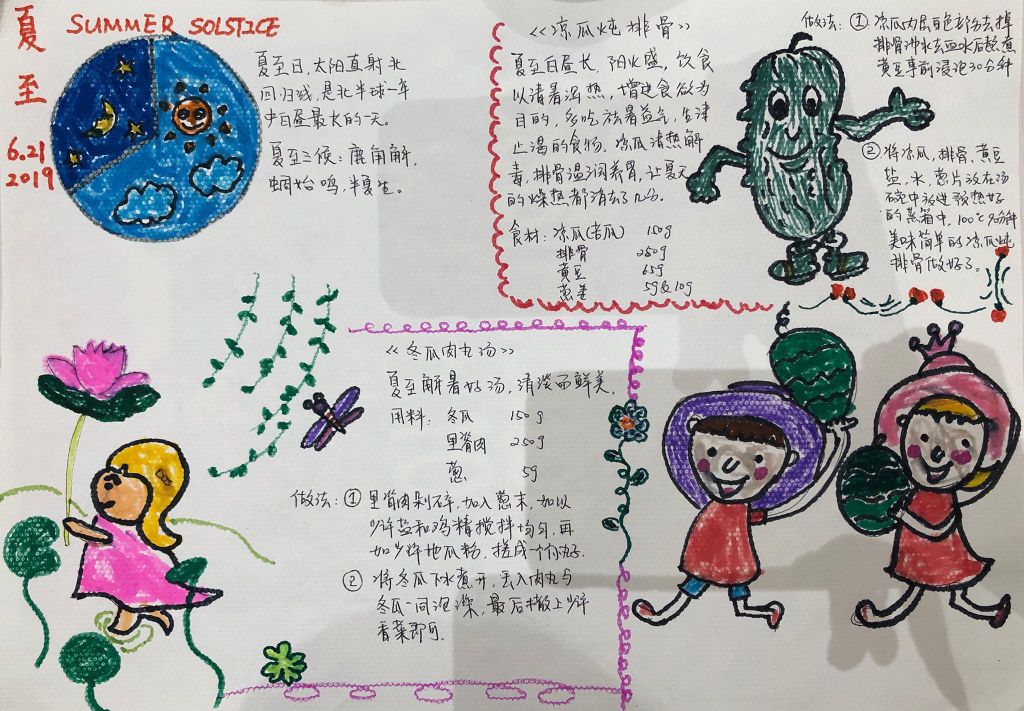 夏至
SUMMER SOLSTICE
6.21
2019
夏至日,太阳直射北
回归线,是北半球一年
中白昼最长的一天。
夏至三候:鹿角解,
蜩始鸣,半夏生。
《凉瓜炖排骨》
夏至白昼长,阳火盛,饮食
以清暑湿热,增进食欲为
目的,多吃祛暑益气,生津
止渴的食物,凉瓜清热解
毒,排骨温润养胃,让夏天
的燥热都消去了几分。
食材:凉瓜(苦瓜) 150g
排骨 250g
黄豆 65g
葱姜 5g&10g
做法:①凉瓜内层白色部份去掉
排骨冲水去血水后轻煮
黄豆事前浸泡30分钟
②将凉瓜,排骨,黄豆
盐,水,葱片放在汤
碗中放进预热好
的蒸箱中,100℃90分钟
美味简单的凉瓜炖
排骨做好了。
《冬瓜肉丸汤》
夏至解暑好汤,清淡而鲜美。
用料:冬瓜 150g
里脊肉 250g
葱 5g
做法:①里脊肉剁碎,加入葱末,加以
少许盐和鸡精搅拌均匀,再
加少许地瓜粉,搓成一个个丸子.
②将冬瓜下水煮开,丢入肉丸与
冬瓜一同泡滚,最后撒上少许
香菜即可.